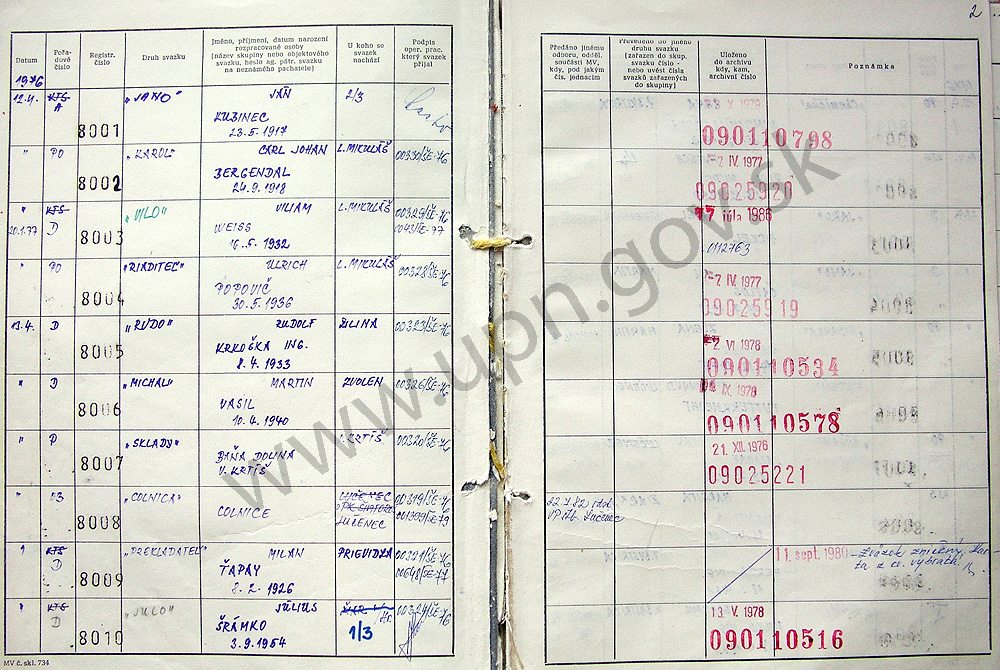 2
Datum
Pořa-
dové
číslo
Registr.
číslo
Druh svazku
Jméno, příjmení, datum narození
rozpracované osoby
(název skupiny nebo objektového
svazku, heslo ag. pátr. svazku
na neznámého pachatele)
U koho se
svazek
nachází
Podpis
oper. prac.
který svazek
přijal
Předáno jinému
odboru, součásti MV,
kdy, pod jakým
čís. jednacím
Převedeno do jiného
druhu svazku
(zařazen do skup.
svazku číslo -
nebo uvést čísla
svazků zařazených
do skupiny)
Uloženo
do archivu
kdy, kam,
archivní číslo
Poznámka
1976
12.4. KTS A 8001 „JANO" JÁN 2/3
KUZINEC
23.5.1917
090110798
" PO 8002 „KAROL" CARL JOHAN L. MIKULÁŠ 00330/ŠE-76
BERGENDAL
24.9.1918
-7 IV. 1977
09025920
" KTS 8003 „VILO" VILIAM L. MIKULÁŠ 00329/ŠE-76
20.1.77 D WEISS 0043/ŠE-77
16.5.1932
17 júla 1986
012763
" PO 8004 „RIADITEĽ" ULRICH L. MIKULÁŠ 00328/ŠE-76
POPOVIČ
30.5.1936
-7 IV. 1977
09025919
13.4. D 8005 „RUDO" RUDOLF ŽILINA 00323/ŠE-76
KRKOŠKA ING.
8.4.1933
VI 1978
090110534
" D 8006 „MICHAL" MARTIN ZVOLEN 00326/ŠE-76
VASIL
10.4.1940
IX 1978
090110578
" P 8007 „SKLADY" V. KRTÍŠ 00320/ŠE-76
BAŇA DOLINA
V. KRTÍŠ
21. XII. 1976
09025221
" 8008 „COLNICA" LUČENEC 00319/ŠE-76
COLNICE LUČENEC
Lučenec
" KTS D 8009 „PREKLADATEĽ" MILAN PRIEVIDZA 00321/ŠE-76
ŤAPAY 00648/ŠE-77
8.2.1926
11. sept. 1980 - Zväzok zničený,
" KTS D 8010 „JULO" JÚLIUS 00324/ŠE-76
ŠRÁMKO 1/3
3.9.1954
13. V. 1978
090110516
MV č. skl. 734
www.upn.gov.sk